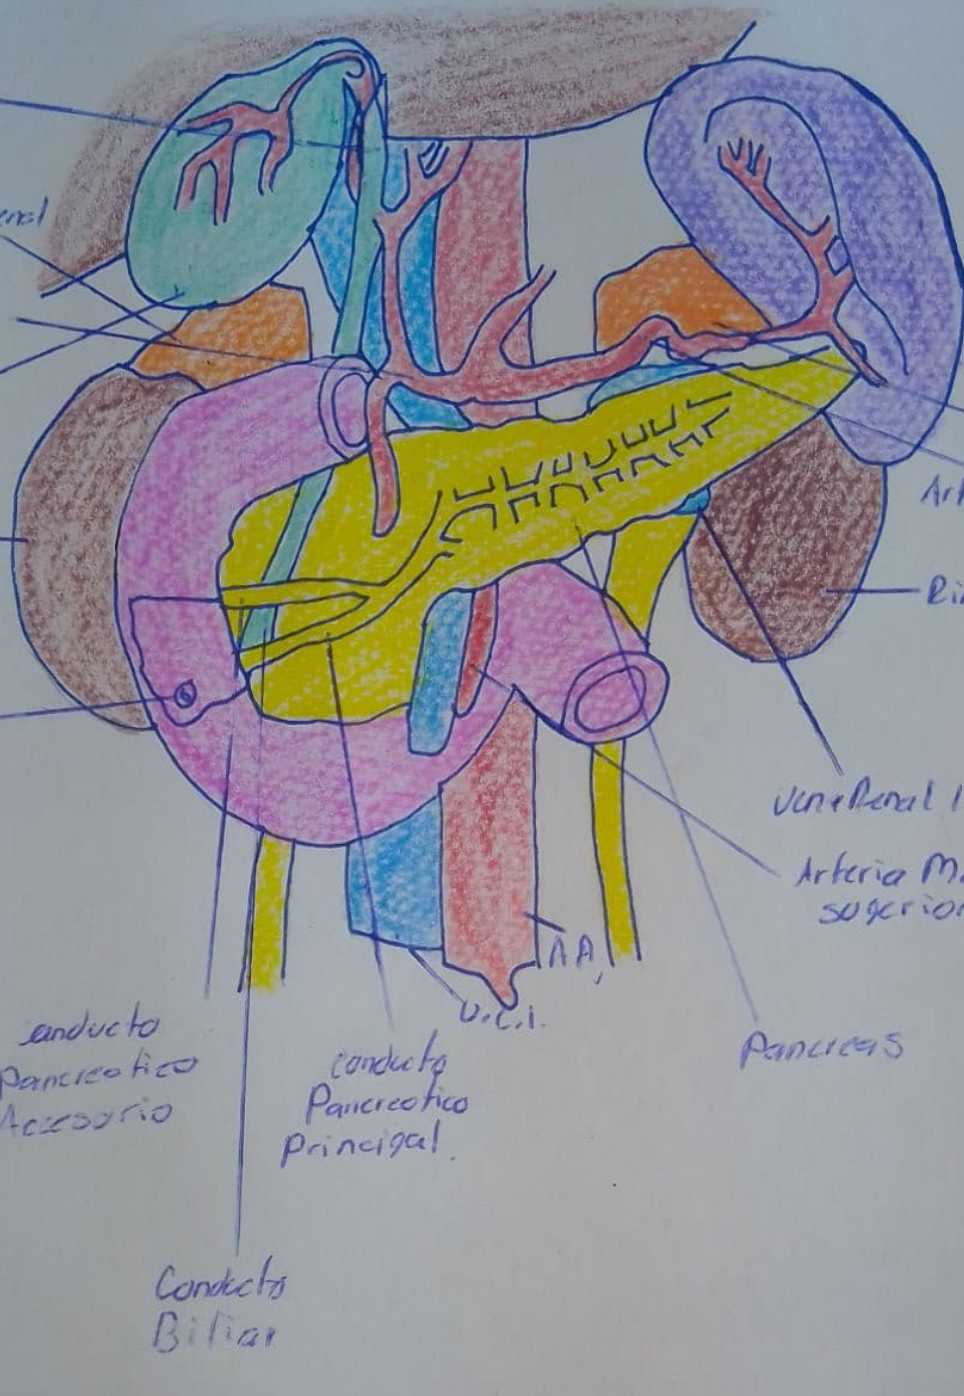 enal
Art
Riñ
Vena Renal I
Arteria M
superior
A A,
V.C.I.
Pancreas
conducto
Pancreotico
Accesorio
conducto
Pancreotico
Principal.
Conducto
Biliar